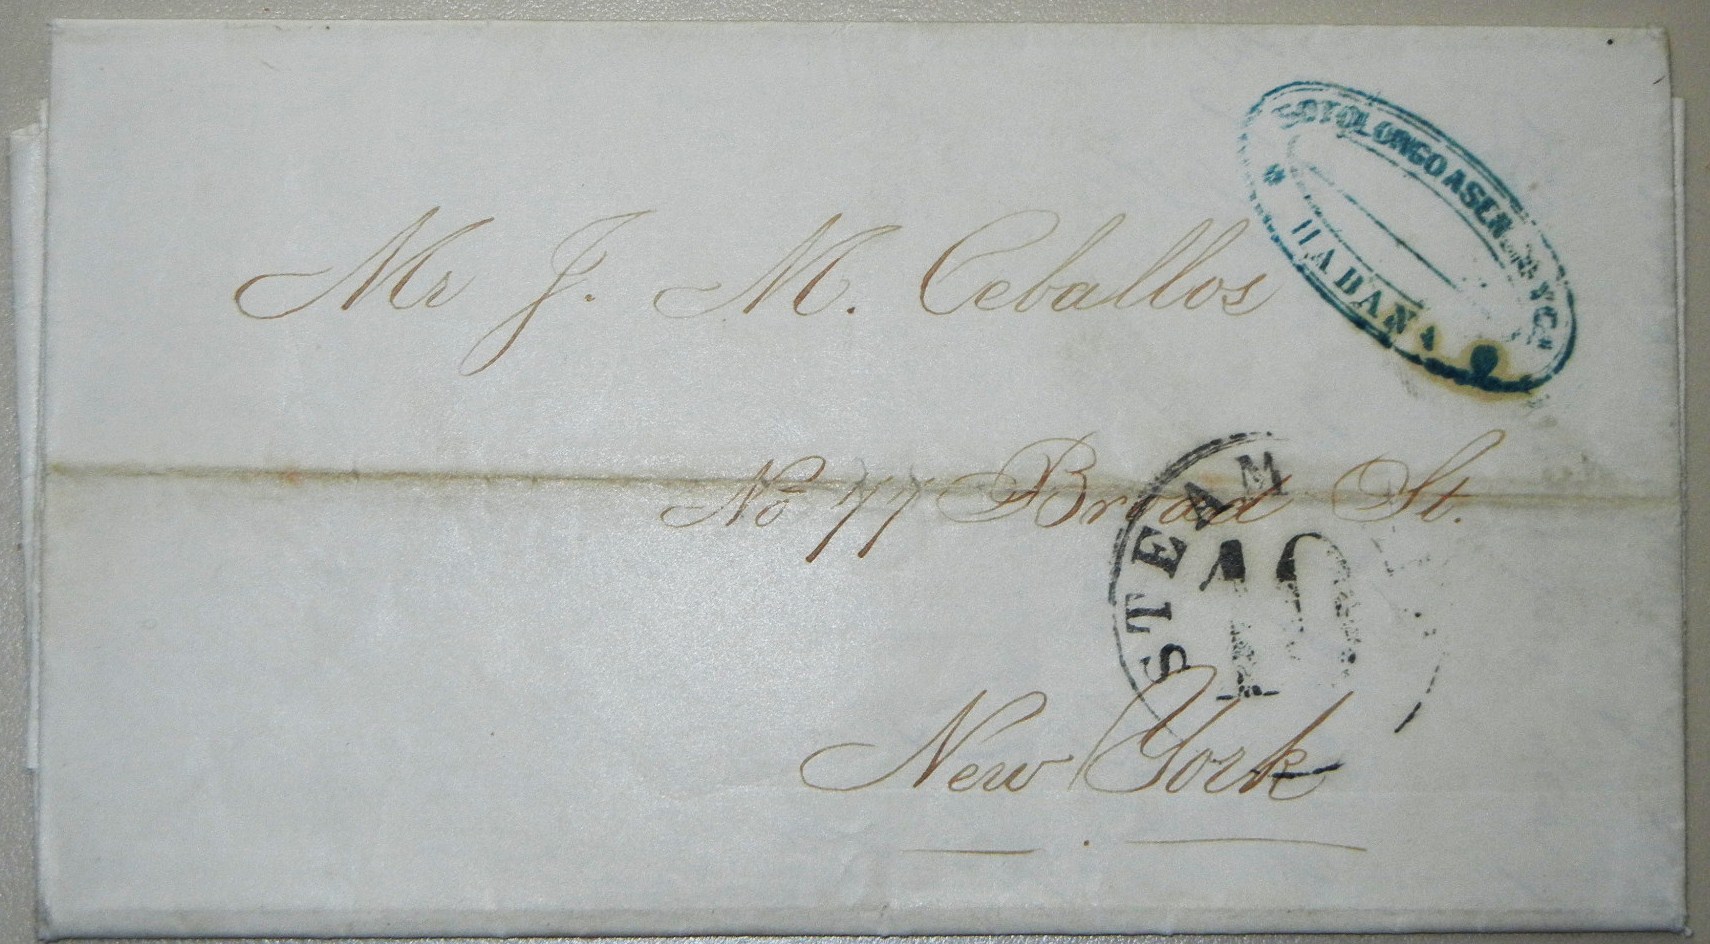 SOTOLONGO ASEN Y Cª
* HABANA
Mr J. M. Ceballos
No 77 Broad St.
STEAM
10
New York